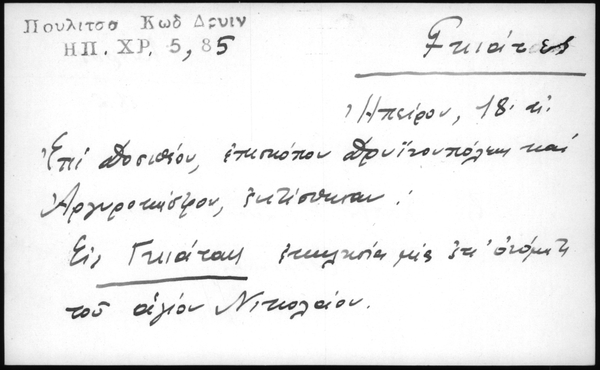 Πουλιτσα Κωδ Δρυιν
ΗΠ. ΧΡ. 5, 85
Γκιάτες
Ἠπείρου, 18. αἰ.
Ἐπί Δοσιθέου, ἐπισκόπου Δρυϊνουπόλεως καί
Ἀργυροκάστρου, ἐκτίσθησαν :
Εἰς Γκιάτας ἐκκλησία μία ἐπ' ὀνόματι
τοῦ ἁγίου Νικολάου.